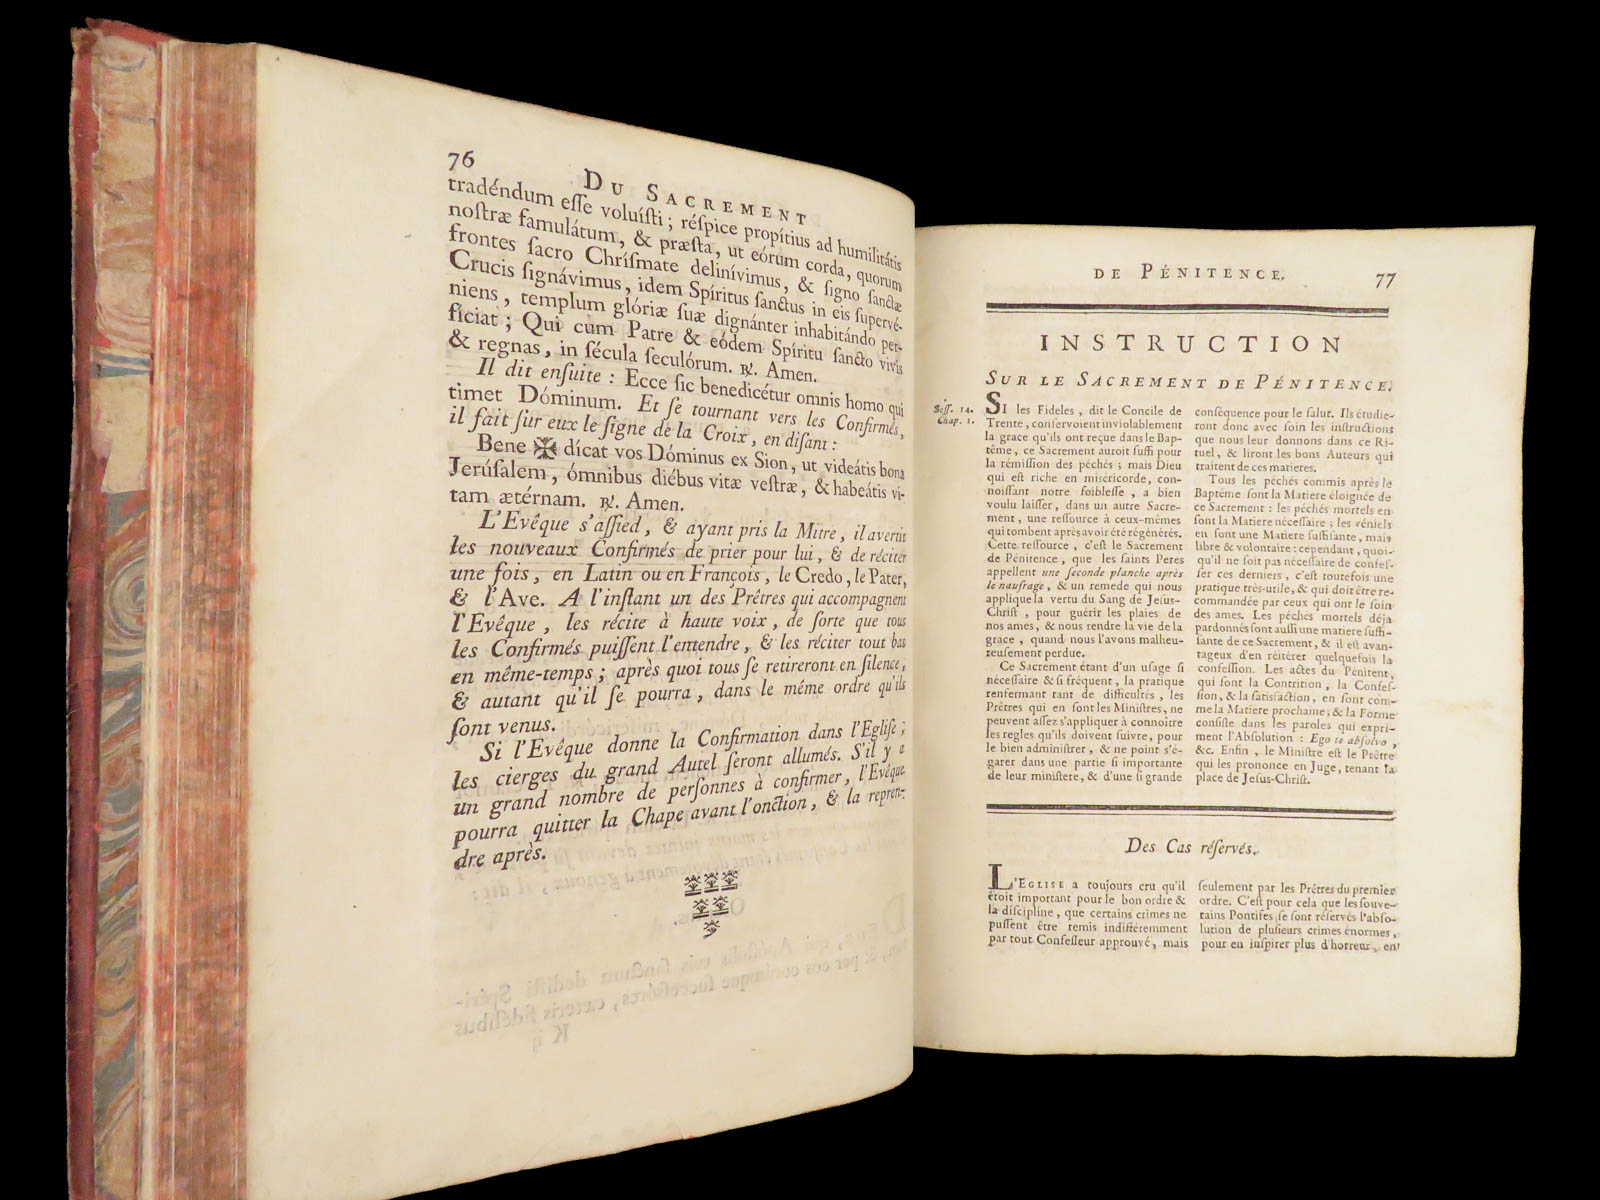 76
DU SACREMENT
tradéndum esse voluísti ; réspice propítius ad humilitátis
nostræ famulátum, & præsta, ut eórum corda, quorum
frontes sacro Chrísmate delinívimus, & signo sanctæ
Crucis signávimus, idem Spíritus sanctus in eis supervé-
niens, templum glóriæ suæ dignánter inhabitándo per-
ficiat ; Qui cum Patre & eódem Spíritu sancto vivis
& regnas, in sécula seculórum. ℟. Amen.
Il dit ensuite : Ecce sic benedicétur omnis homo qui
timet Dóminum. Et se tournant vers les Confirmés,
il fait sur eux le signe de la Croix, en disant :
Bene ✠ dícat vos Dóminus ex Sion, ut videátis bona
Jerúsalem, ómnibus diébus vitæ vestræ, & habeátis vi-
tam ætérnam. ℟. Amen.
L'Evêque s'assied, & ayant pris la Mitre, il avertit
les nouveaux Confirmés de prier pour lui, & de réciter
une fois, en Latin ou en François, le Credo, le Pater,
& l'Ave. A l'instant un des Prêtres qui accompagnent
l'Evêque, les récite à haute voix, de sorte que tous
les Confirmés puissent l'entendre, & les réciter tout bas
en même-temps ; après quoi tous se retireront en silence,
& autant qu'il se pourra, dans le même ordre qu'ils
sont venus.
Si l'Evêque donne la Confirmation dans l'Eglise ;
les cierges du grand Autel seront allumés. S'il y a
un grand nombre de personnes à confirmer, l'Evêque
pourra quitter la Chape avant l'onction, & la repren-
dre après.
DE PÉNITENCE.
77
INSTRUCTION
SUR LE SACREMENT DE PÉNITENCE.
Sess. 14.
Chap. 1.
SI les Fideles, dit le Concile de
Trente, conservoient inviolablement
la grace qu'ils ont reçue dans le Bap-
tême, ce Sacrement auroit suffi pour
la rémission des péchés ; mais Dieu
qui est riche en miséricorde, con-
noissant notre foiblesse, a bien
voulu laisser, dans un autre Sacre-
ment, une ressource à ceux-mêmes
qui tombent après avoir été régénérés.
Cette ressource, c'est le Sacrement
de Pénitence, que les saints Peres
appellent une seconde planche après
le naufrage, & un remede qui nous
applique la vertu du Sang de Jesus-
Christ, pour guérir les plaies de
nos ames, & nous rendre la vie de la
grace, quand nous l'avons malheu-
reusement perdue.
Ce Sacrement étant d'un usage si
nécessaire & si fréquent, la pratique
renfermant tant de difficultés, les
Prêtres qui en sont les Ministres, ne
peuvent assez s'appliquer à connoître
les regles qu'ils doivent suivre, pour
le bien administrer, & ne point s'é-
garer dans une partie si importante
de leur ministere, & d'une si grande
conséquence pour le salut. Ils étudie-
ront donc avec soin les instructions
que nous leur donnons dans ce Ri-
tuel, & liront les bons Auteurs qui
traitent de ces matieres.
Tous les péchés commis après le
Baptême sont la Matiere éloignée de
ce Sacrement : les péchés mortels en
sont la Matiere nécessaire ; les véniels
en sont une Matiere suffisante, mais
libre & volontaire : cependant, quoi-
qu'il ne soit pas nécessaire de confes-
ser ces derniers, c'est toutefois une
pratique très-utile, & qui doit être re-
commandée par ceux qui ont le soin
des ames. Les péchés mortels déja
pardonnés sont aussi une matiere suffi-
sante de ce Sacrement, & il est avan-
tageux d'en réitérer quelquefois la
confession. Les actes du Pénitent,
qui sont la Contrition, la Confes-
sion, & la satisfaction, en sont com-
me la Matiere prochaine ; & la Forme
consiste dans les paroles qui expri-
ment l'Absolution : Ego te absolvo,
&c. Enfin, le Ministre est le Prêtre
qui les prononce en Juge, tenant la
place de Jesus-Christ.
Des Cas réservés.
L'EGLISE a toujours cru qu'il
étoit important pour le bon ordre &
la discipline, que certains crimes ne
pussent être remis indifféremment
par tout Confesseur approuvé, mais
seulement par les Prêtres du premier
ordre. C'est pour cela que les souve-
rains Pontifes se sont réservés l'abso-
lution de plusieurs crimes énormes,
pour en inspirer plus d'horreur, en